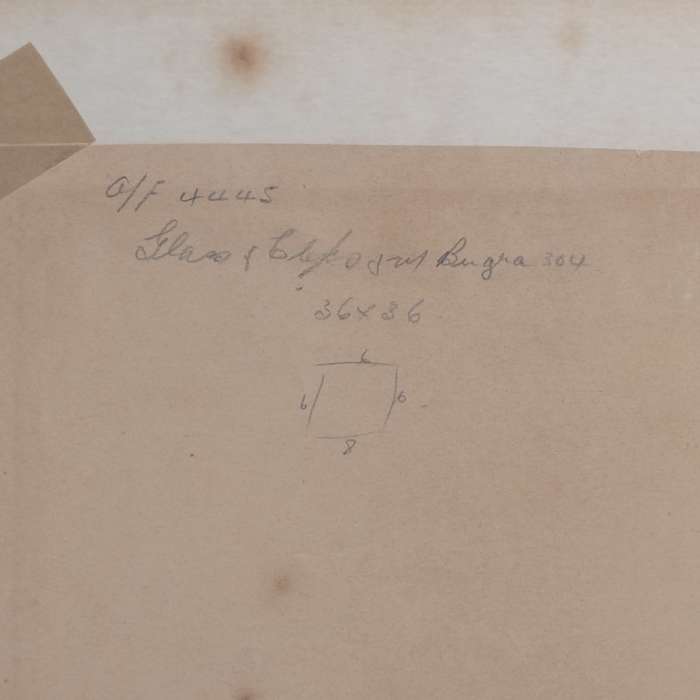 O/F 4445
Glass & Clips & cut Bugra 304
36 x 36
6
6 6
8